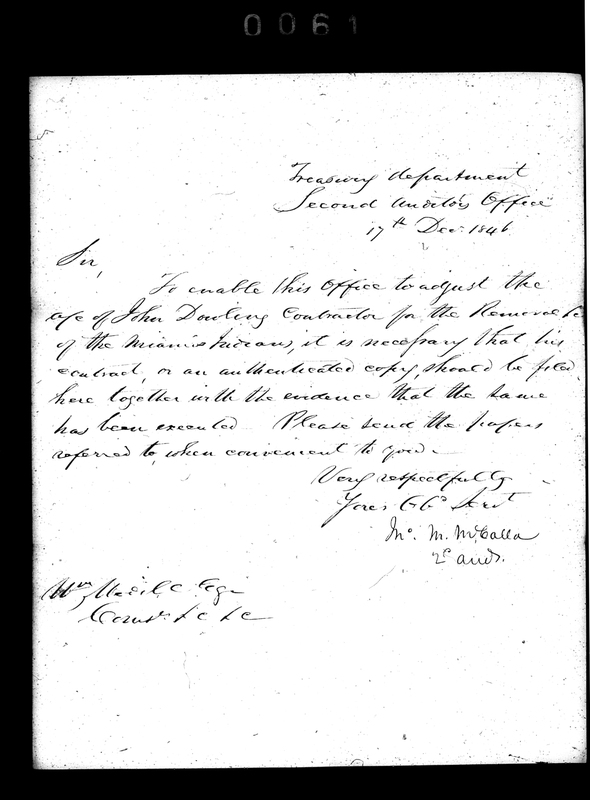 0061
Treasury department
Second Auditor's Office
17th Dec. 1846
Sir,
To enable this Office to adjust the
a/c of John Dowling Contractor for the Removal &c
of the Miami Indians, it is necessary that his
contract, or an authenticated copy, should be filed
here together with the evidence that the same
has been executed. Please send the papers
referred to, when convenient to you.
Very respectfully
Your Ob. Servt
Jno. M. McCalla
2d Aud.
Wm Medill Esqr
Comr. &c &c